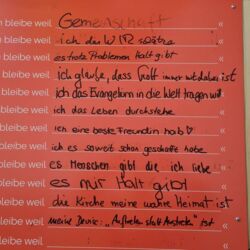 bleibe weil Gemeinschaft
bleibe weil ich das WIR spüre «
bleibe weil es trotz Problemen Halt gibt «
bleibe weil ich glaube, dass Gott immer mit dabei ist «
bleibe weil ich das Evangelium in die Welt tragen will «
bleibe weil ich das Leben durchstehe «
bleibe weil ich eine beste Freundin hab ♡ «
bleibe weil ich es soweit schon geschafft habe «
bleibe weil es Menschen gibt die ich liebe «
bleibe weil es mir Halt gibt «
bleibe weil die Kirche meine wahre Heimat ist «
bleibe weil meine Devise: „Aufstehen statt Austreten" ist «
bleibe weil «